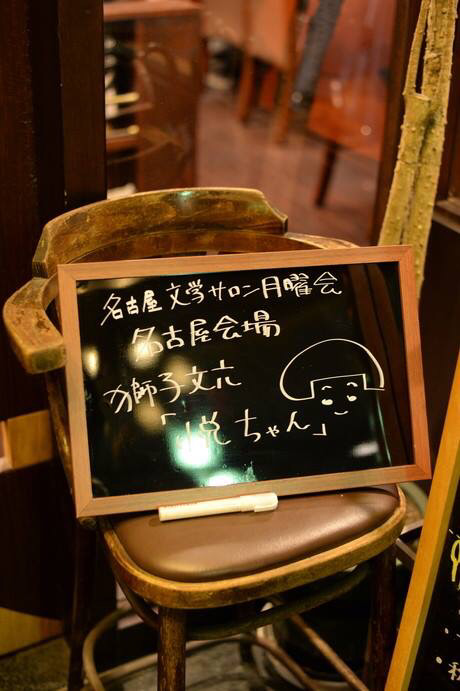 名古屋文学サロン月曜会
名古屋会場
獅子文六
「悦ちゃん」